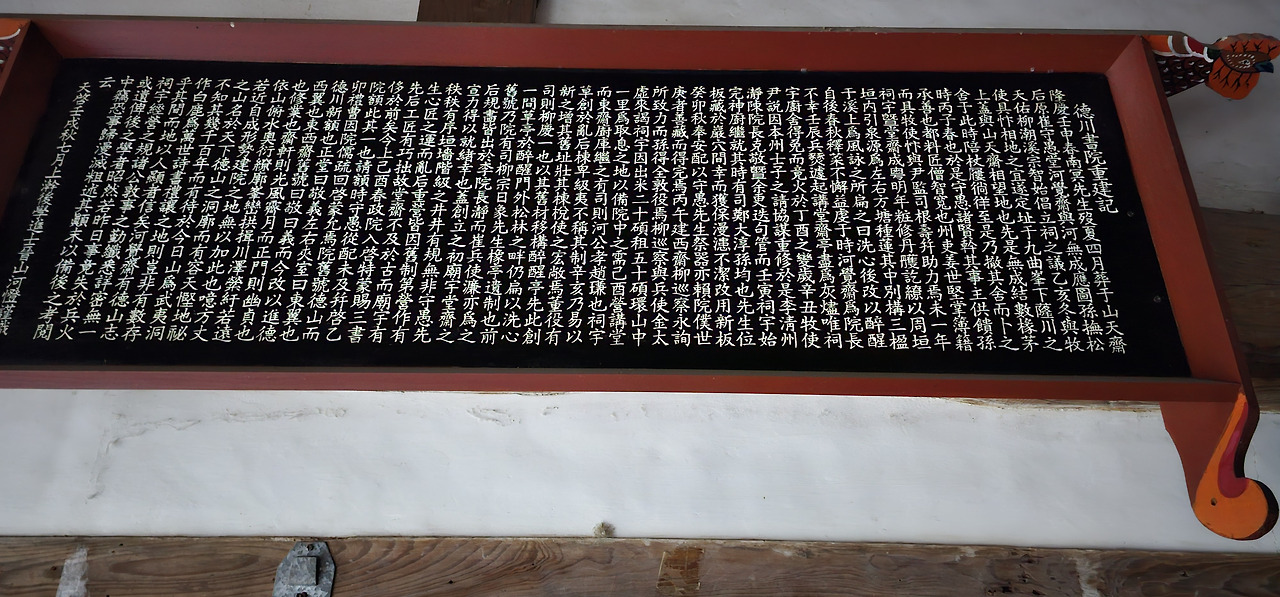 德川書院重建記
隆慶壬申春南冥先生歿夏四月葬于山天齋
后原崔守愚堂河覺齋與河無成應圖孫撫松
天佑柳潮溪宗智始倡立祠之議乙亥冬與牧
使具忭相地之宜遂定址于九曲峯下薩川之
上蓋與山天齋相望地也先是無成結數椽茅
舍于此時陪杖屨徜徉至是乃撤其舍而卜之
時丙子春也於是守愚諸賢幹其事主供饋孫
承善也都料匠僧智寬也州吏姜世堅掌簿籍
而具牧使忭與尹監司根壽幷助力焉未一年
祠宇曁堂齋成粤明年粧修丹雘訖繚以周垣
垣内引泉源爲左右方塘種蓮其中別構三楹
于溪上爲風詠之所扁之曰洗心後改以醉醒
自後春秋釋菜不懈益虔于時河覺齋爲院長
不幸壬辰兵燹遽起講堂齋亭盡爲灰燼唯祠
宇廚舍得免而竟火於丁酉之變歲辛丑牧使
尹說因本州士子之請協謀重修於是李淸州
瀞陳院長克敬曁余更迭句管而壬寅祠宇始
完神廚繼就其時有司鄭大淳孫均也先生位
板藏於巖穴間幸而獲保漫漶不潔改用新板
癸卯秋奉安配以守愚先生祭器亦賴院僕世
庚者善藏而得完焉丙午建西齋柳巡察永詢
所致力而孫得全敦役焉柳巡察與兵使金太
虛來謁祠宇因出米二十碩租五十碩環山中
一里爲取息之地以備院中之需己酉營講堂
而東齋廚庫繼之有司則河公孝趙㻩也祠宇
草創於亂后棟卑級夷不稱其制辛亥乃易以
新之增其舊址壯其棟梲使之宏敞焉董役有
司則柳慶一也以其舊材移構醉醒亭先此創
一間草亭於醉醒門外松林之畔仍扁以洗心
舊號乃院有司柳宗日象先生橡亭遺制也前
后規畫皆出於李院長瀞而崔兵使濂亦爲之
宣力得以就緖幸也蓋創立之初廟宇堂齋之
秩秩有序垣墻階級之井井有規無非守愚先
生心匠之運而亂后重營皆因舊制第營作有
先后工匠有巧拙故堂齋不及於古而廟宇有
侈於前矣今上己酉春政院入啓特蒙賜三書
院額此其一也請額時守愚從配未及幷啓乙
卯禮曹因院儒疏回啓蒙允焉院舊號德山而
德川新額也正堂曰敬義左右夾室曰東翼也
西翼也東西齋舊號曰敬曰義而今改以進德
也修業也齋前軒則光風霽月而正門則幽貞也
依山俯水奧衍縈廻峯巒拱揖川澤縈紆若遠
若近自成形勢建院之地無以加此也噫方丈
之山名於天下德山之洞廓而有容天慳地祕
不知其幾千百年而有待於今日山爲武夷洞
作白鹿萬世詩書禮讓之地則豈非有數存
乎其間而地以人顯者信矣河覺齋有德山志
祠宇經營之規諸公敦事之勤纖悉詳密無一
或遺俾後之學者昭然若昨日事竟失於兵火
中竊恐事歸漫滅粗述其顚末以備後之考閱
云
天啓壬戌秋七月上澣後學進士晉山河憕謹識